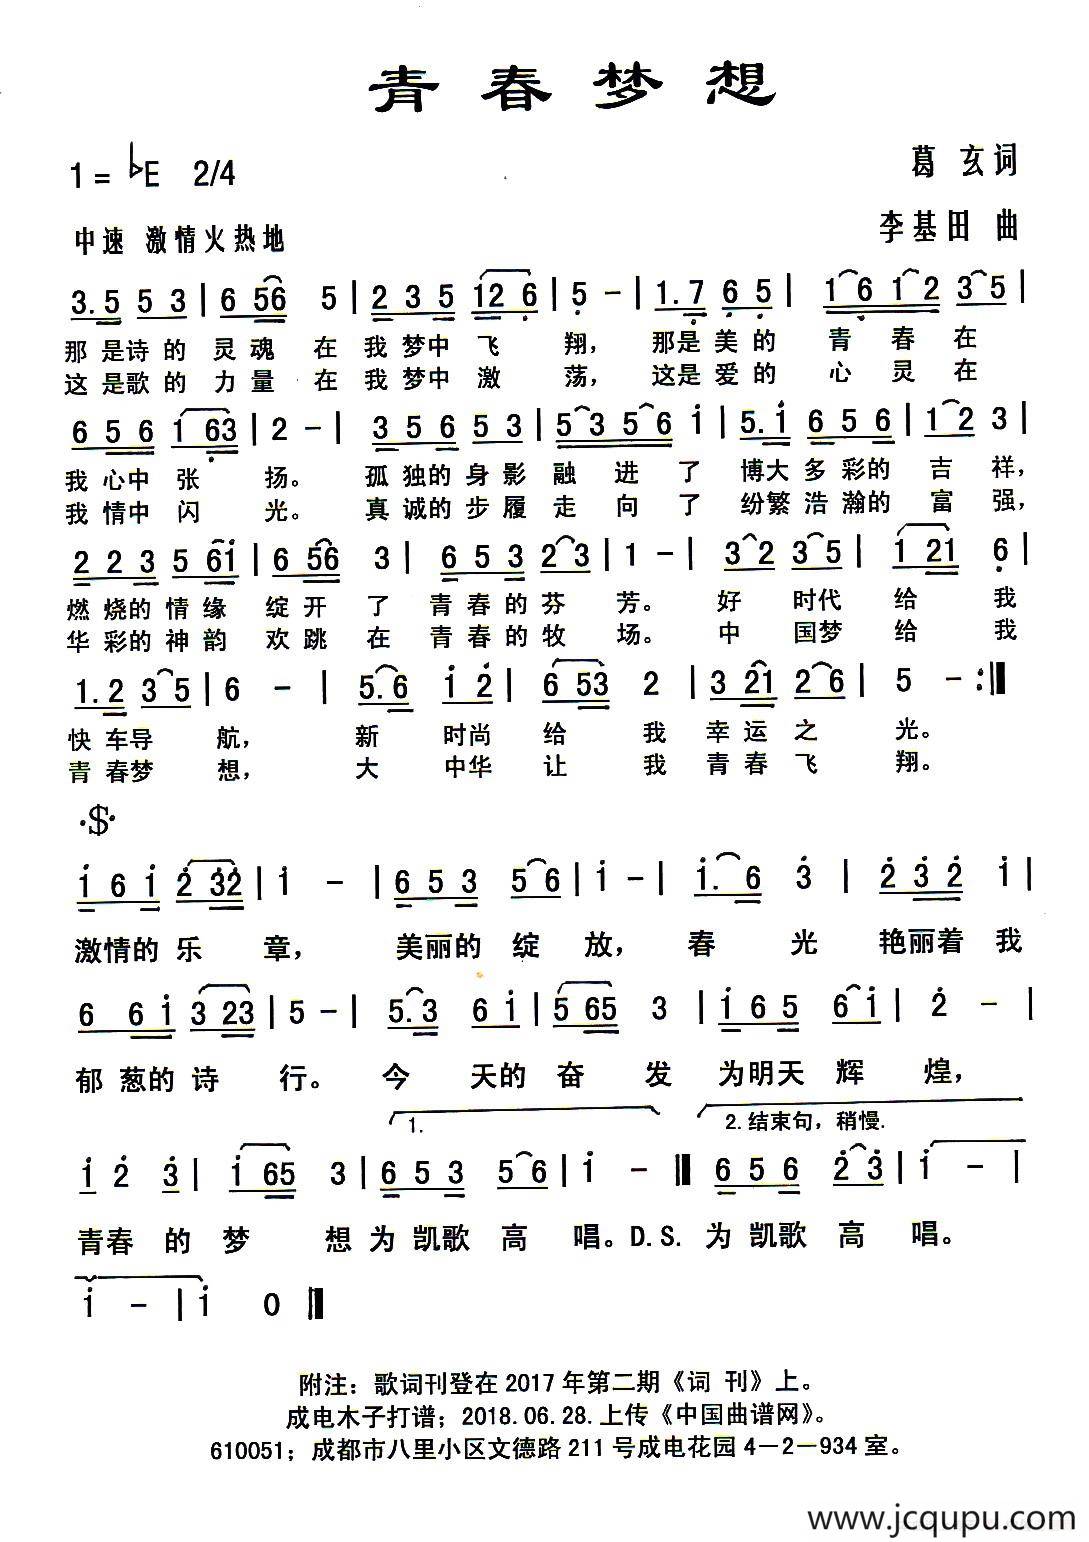 青春梦想
1=♭E 2/4
葛 玄 词
中速 激情火热地
李基田 曲
3.5 5 3 | 6 56 5 | 2 3 5 12 6 | 5 - | 1.7 6 5 | 1 6 1 2 3 5 |
那 是诗 的 灵 魂 在 我 梦中 飞 翔, 那是 美 的 青 春 在
这 是歌 的 力 量 在 我 梦中 激 荡, 这是 爱 的 心 灵 在
6 5 6 1 63 | 2 - | 3 5 6 5 3 | 5 3 5 6 i | 5.i 6 5 6 | 1 2 3 |
我 心中 张 扬。 孤 独的 身 影 融 进 了 博大 多 彩的 吉 祥,
我 情中 闪 光。 真 诚的 步 履 走 向 了 纷繁 浩 瀚的 富 强,
2 2 3 5 6i | 6 56 3 | 6 5 3 2 3 | 1 - | 3 2 3 5 | 1 21 6 |
燃 烧的 情 缘 绽 开 了 青 春 的 芬 芳。 好 时代 给 我
华 彩的 神 韵 欢 跳 在 青 春 的 牧 场。 中 国梦 给 我
1.2 3 5 | 6 - | 5.6 i 2 | 6 53 2 | 3 21 2 6 | 5 - :‖
快 车导 航, 新 时尚 给 我 幸 运 之 光。
青 春梦 想, 大 中华 让 我 青 春 飞 翔。
·$·
i 6 i 2 32 | i - | 6 5 3 5 6 | i - | i. 6 3 | 2 3 2 i |
激情的 乐 章, 美丽的 绽 放, 春 光 艳丽着 我
6 6 i 3 23 | 5 - | 5.3 6 i | 5 65 3 | i 6 5 6 i | 2 - |
郁 葱的 诗 行。 今 天的 奋 发 为明天 辉 煌,
1. 2.结束句，稍慢.
i 2 3 | i 65 3 | 6 5 3 5 6 | i - ‖ 6 5 6 2 3 | i - |
青春 的 梦 想 为 凯歌 高 唱。D.S. 为 凯歌 高 唱。
i - | i 0 ‖
附注：歌词刊登在 2017 年第二期《词 刊》上。
成电木子打谱；2018.06.28.上传《中国曲谱网》。
610051；成都市八里小区文德路 211 号成电花园 4－2－934 室。
www.jcqupu.com